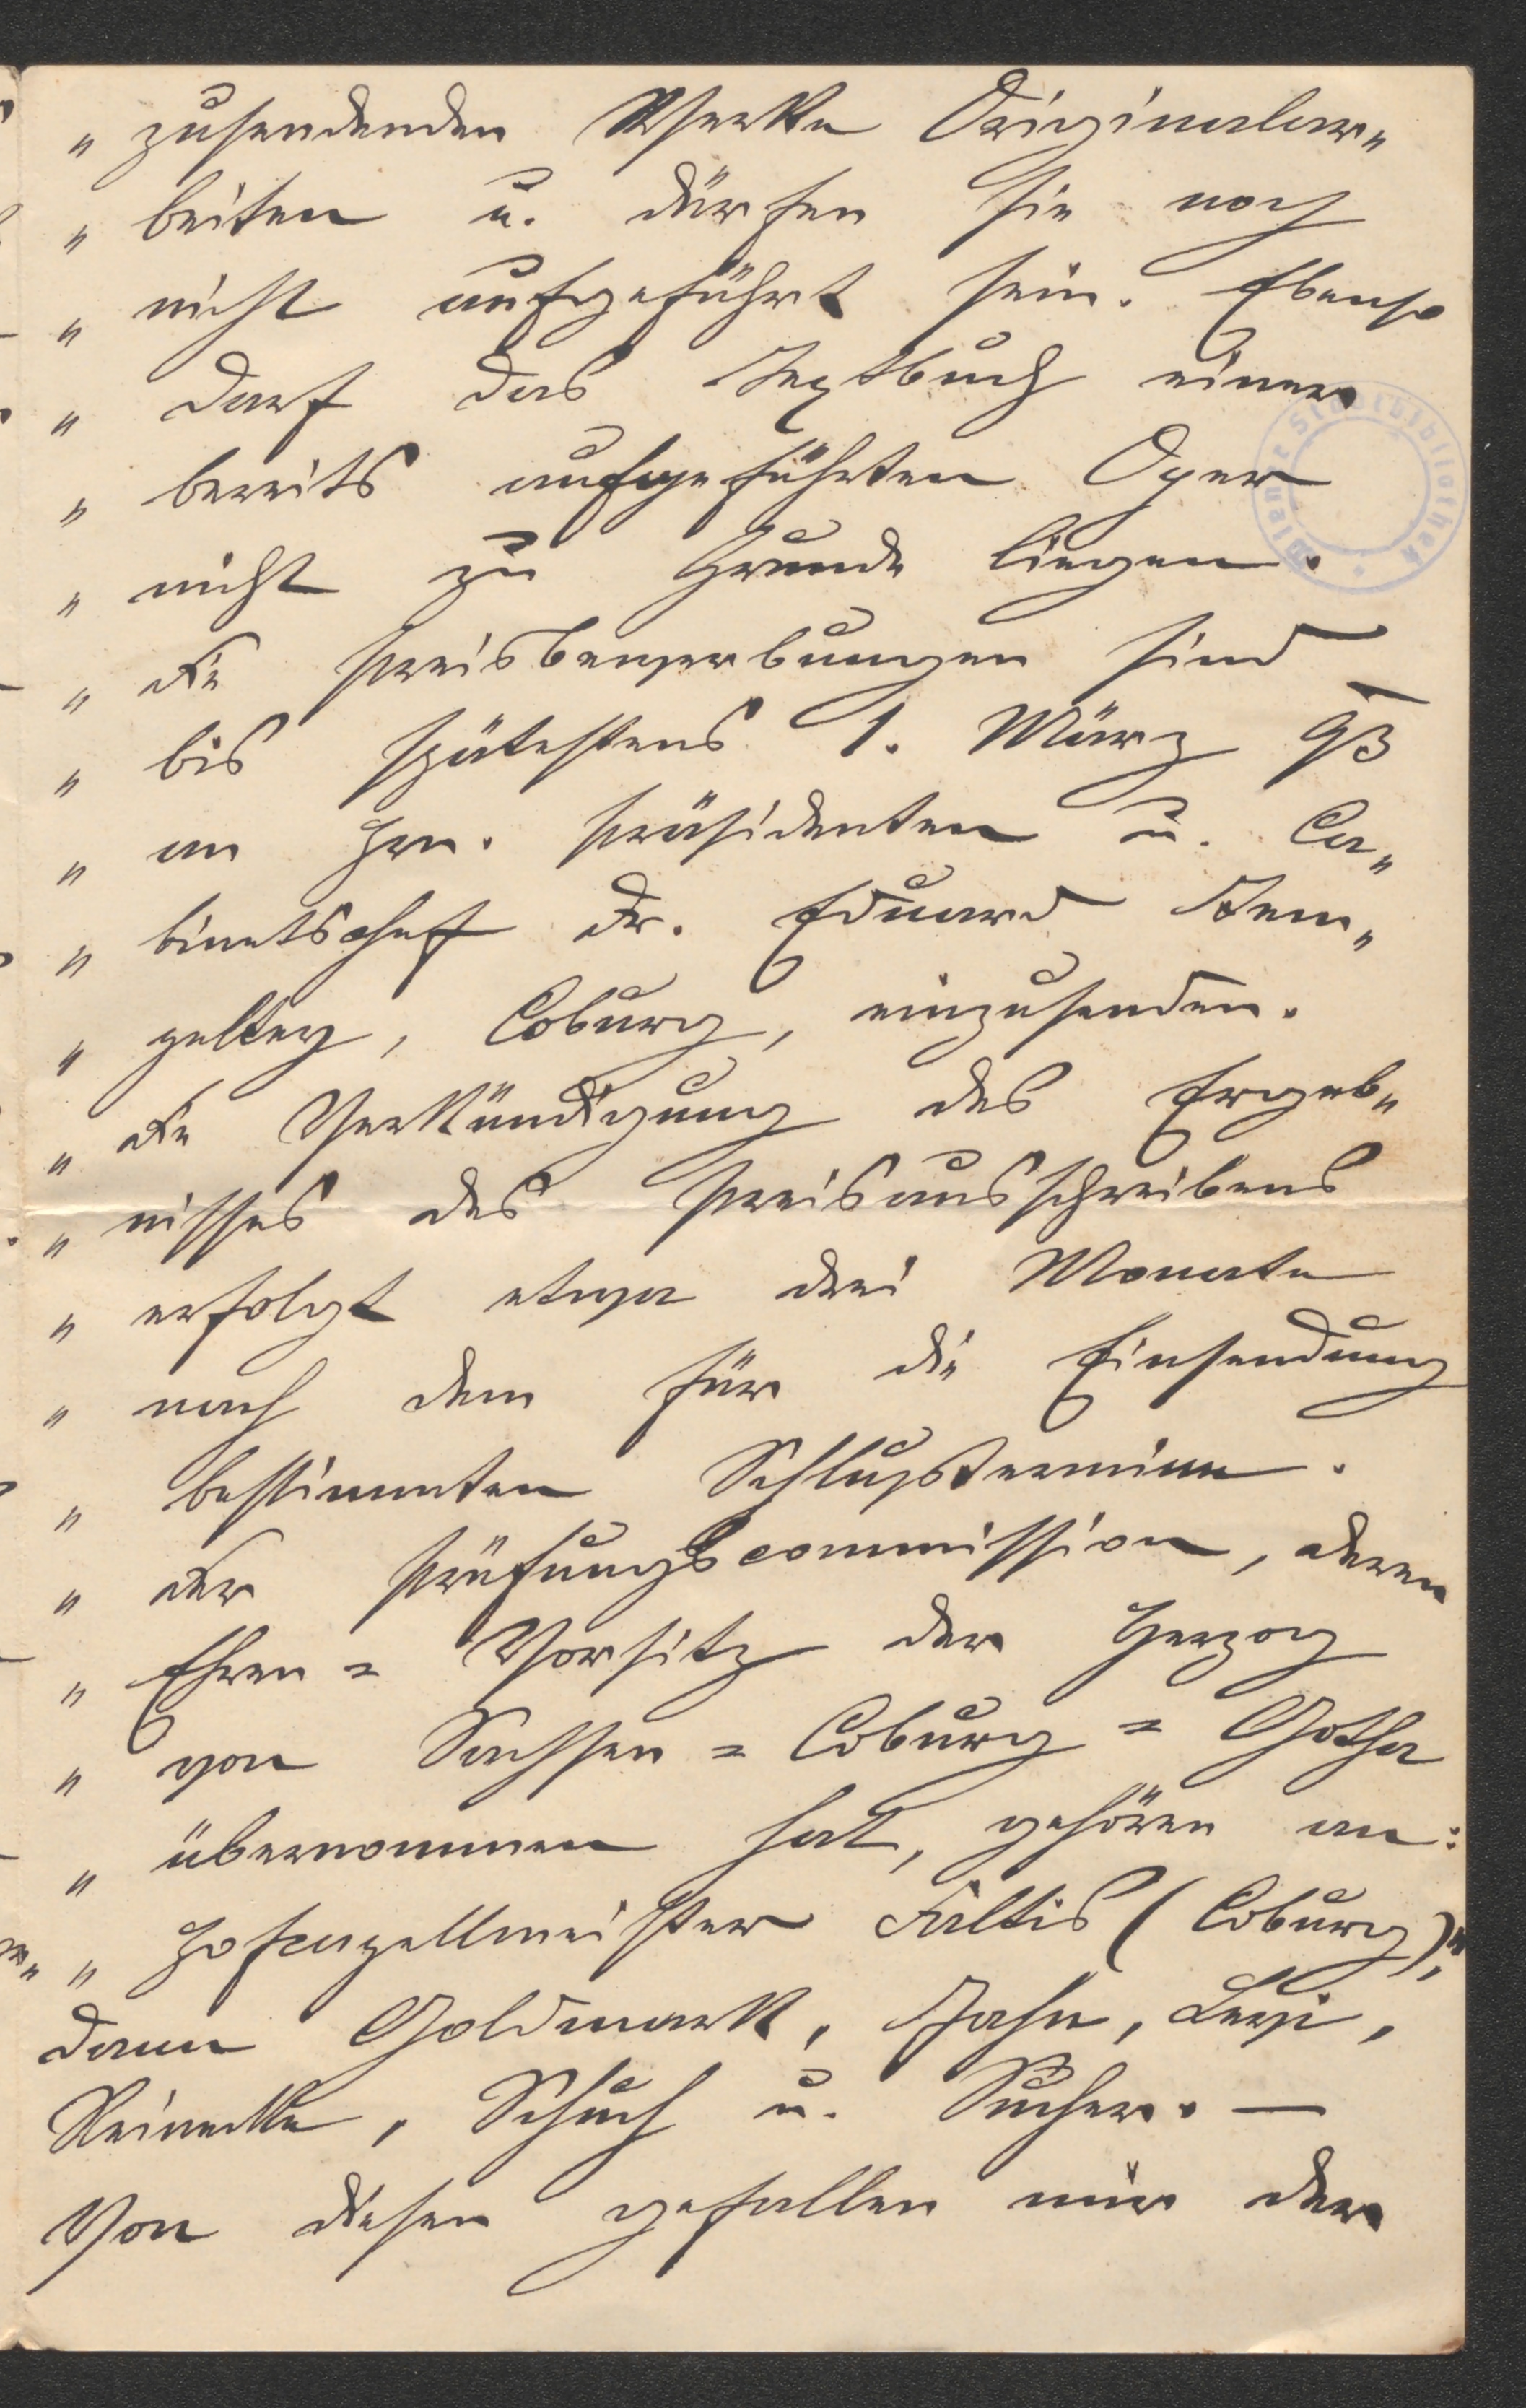 „ zusendenden Werke Originalar„
„ beiten u. dürfen sie noch
„ nicht aufgeführt sein. Ebenso
„ darf das Textbuch einer
„ bereits aufgeführten Oper
„ nicht zu Grunde liegen.
„ Die Preisbewerbungen sind
„ bis spätestens 1. März 93
„ an Hrn. Präsidenten u. Ca„
„ binetschef Dr. Eduard Tem„
„ peltey, Coburg, einzusenden.
„ Die Verkündigung des Ergeb„
„ nisses des Preisausschreibens
„ erfolgt etwa drei Monate
„ nach dem für die Einsendung
„ bestimmten Schlußtermine.
„ Der Prüfungscommission, deren
„ Ehren = Vorsitz der Herzog
„ von Sachsen = Coburg = Gotha
„ übernommen hat, gehören an:
„ Hofcapellmeister Faltis (Coburg),"
dann Goldmark, Jahn, Levi,
Reinecke, Schuch u. Sucher. —
Von diesen gefallen mir der
Wiener Stadtbibliothek